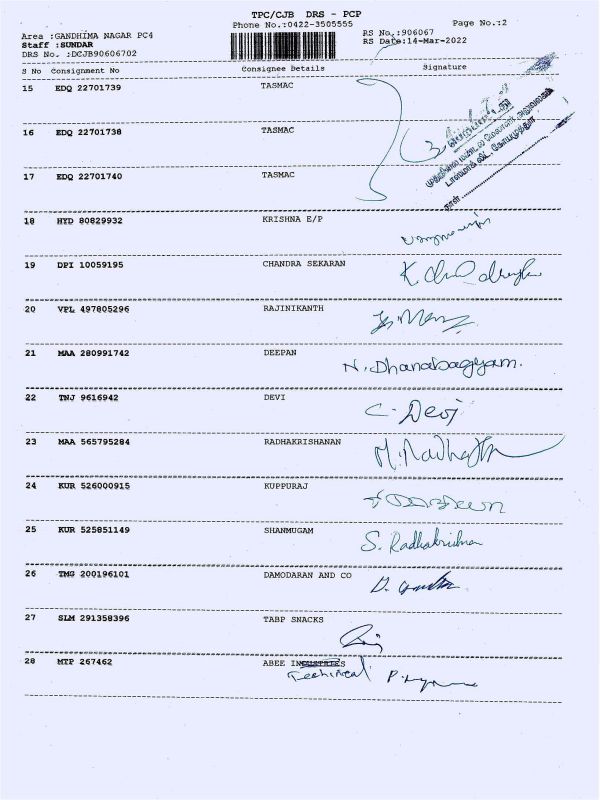 TPC/CJB DRS - PCP
Phone No.:0422-3505555 Page No.:2
Area :GANDHIMA NAGAR PC4 RS No.:906067
Staff :SUNDAR RS Date:14-Mar-2022
DRS No. :DCJB90606702
S No Consignment No Consignee Details Signature
15 EDQ 22701739 TASMAC
16 EDQ 22701738 TASMAC
17 EDQ 22701740 TASMAC
நாள்
18 HYD 80829932 KRISHNA E/P
19 DPI 10059195 CHANDRA SEKARAN
20 VPL 497805296 RAJINIKANTH
21 MAA 280991742 DEEPAN N. Dhanabagyam.
22 TNJ 9616942 DEVI C. Devi
23 MAA 565795284 RADHAKRISHANAN
24 KUR 526000915 KUPPURAJ
25 KUR 525851149 SHANMUGAM S. Radhakrishnan
26 TMG 200196101 DAMODARAN AND CO
27 SLM 291358396 TABP SNACKS
28 MTP 267462 ABEE INDUSTRIES
Techinical